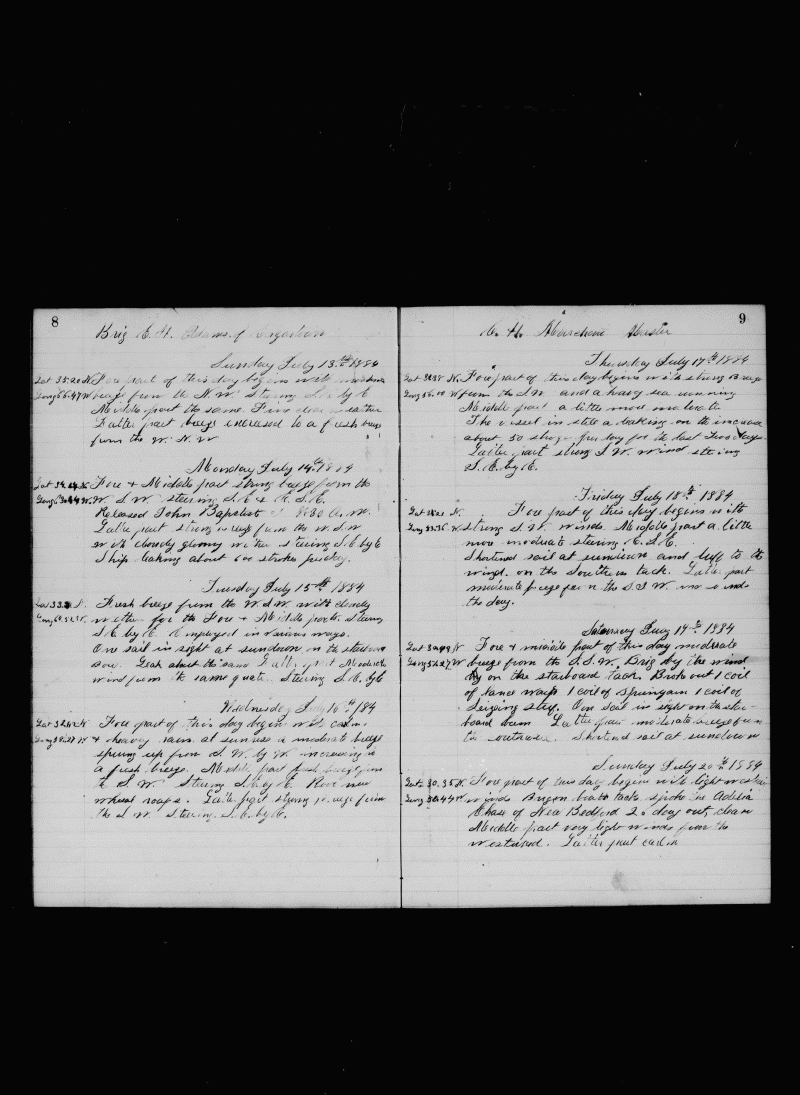 8
Brig E. H. Adams of Edgartown
Sunday July 13th 1884
Lat 35.20 N Fore part of this day begins with moderate
Long 66.47 W breeze from the N.W. Steering S.E. by E
Middle part the same. Fine clear weather
Latter part breeze increased to a fresh breeze
from the W. N. W
Monday July 14th 1884
Fore & Middle part strong breeze from the
W. S. W. steering S.E. & E.S.E.
Released John Baptist at 8.30 A.M.
Latter part strong breeze from the W.S.W
with cloudy gloomy weather steering S.E. by E
Ship leaking about 600 strokes pr day.
Tuesday July 15th 1884
Fresh breeze from the W.S.W. with cloudy
weather for the Fore & Middle parts. Steering
S.E. by E. Employed in various ways.
One sail in sight at sundown on the starboard
bow. Leak about the same Latter part Moderate
wind from the same quarter. Steering S.E. by E
Wednesday July 16th /84
Fore part of this day begins with calm
& heavy rain. at sunrise a moderate breeze
sprung up from S. W. by W. increasing to
a fresh breeze. Middle part fresh breeze from
the S. W. Steering S.E. by E. Rove new
wheel ropes. Latter part strong breeze from
the S. W. Steering S.E. by E.
9
Master
Thursday July 17th 1884
Fore part of this day begins with strong Breeze
from the S.W. and a heavy sea running
Middle part a little more moderate
The vessel is still a leaking on the increase
about 50 strokes per day for the last Two days
Latter part strong S.W. wind steering
S.E. by E.
Friday July 18th 1884
Fore part of this day begins with
strong S.W. winds Middle part a little
more moderate steering E.S.E.
Shortened sail at sundown and luff to the
wind. on the Southern tack. Latter part
moderate breeze from the S.S.W.
the day.
Saturday July 19th 1884
Fore & middle part of this day moderate
Long 52.27 W breeze from the S.S.W. Brig by the wind
on the starboard tack. Broke out 1 coil
of lance warp 1 coil of spunyarn 1 coil of
seizing stuff. One sail in sight on the star-
board beam Latter part moderate breeze from
the southward. Shortened sail at sundown
Sunday July 20th 1884
Lat 30.35 N Fore part of this day begins with light westerly
winds Brig on both tacks spoke the Adelia
Chase of New Bedford 20 days out, clean
Middle part very light winds from the
westward. Latter part calm